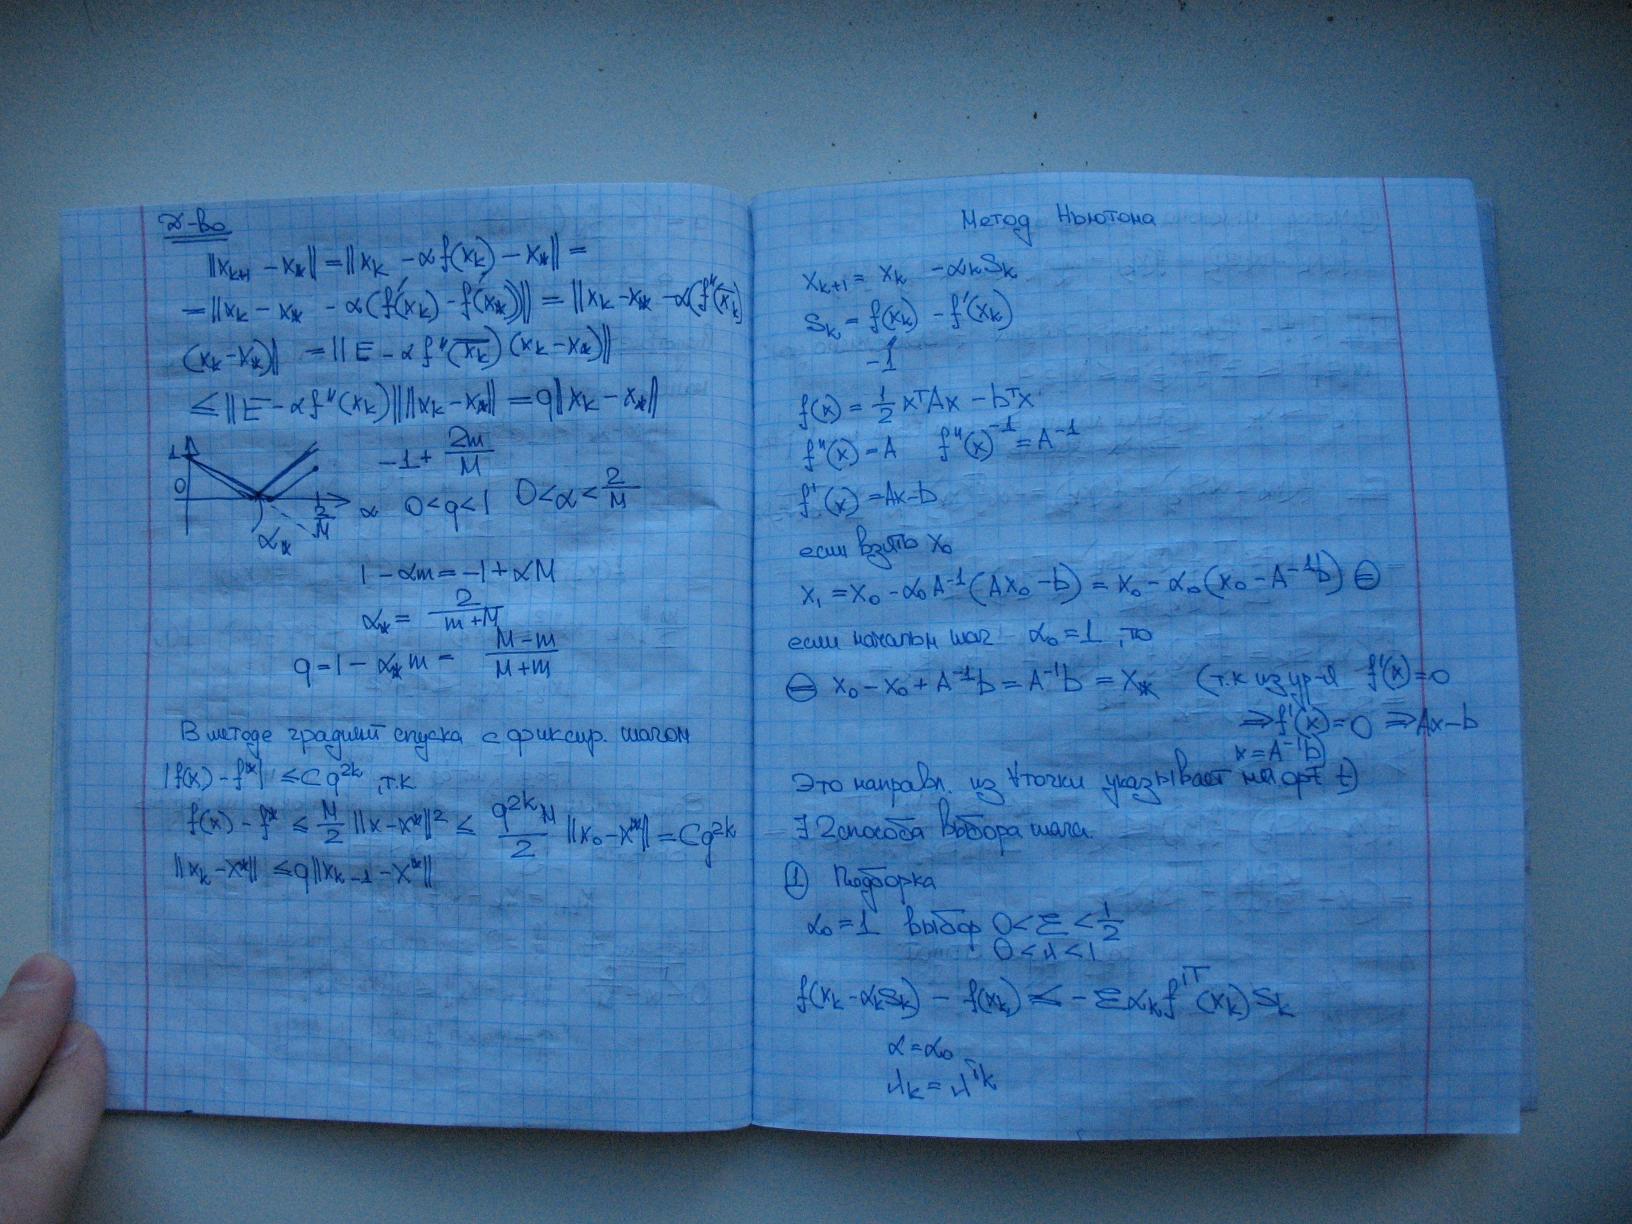 Д-во
||x_{k+1} - x_*|| = ||x_k - αf(x_k) - x_*|| =
= ||x_k - x_* - α(f'(x_k) - f'(x_*))|| = ||x_k - x_* - α(f''(x̄_k)
(x_k - x_*)|| = ||E - αf''(x̄_k)(x_k - x_*)||
≤ ||E - αf''(x_k)|| ||x_k - x_*|| = q||x_k - x_*||
1
-1 + 2m/M
0 2/M α 0<q<1 0<α<2/M
α_*
1 - αm = -1 + αM
α_* = 2/(m+M)
q = 1 - α_*m = (M-m)/(M+m)
В методе градиент спуска с фиксир. шагом
|f(x) - f*| ≤ Cq^{2k}, т.к
f(x) - f* ≤ M/2 ||x - x*||² ≤ q^{2k}M/2 ||x_0 - x*|| = Cq^{2k}
||x_k - x*|| ≤ q||x_{k-1} - x*||
Метод Ньютона
x_{k+1} = x_k - α_k S_k
S_k = f(x_k) - f'(x_k)
-1
f(x) = 1/2 x^T Ax - b^T x
f''(x) = A f''(x)^{-1} = A^{-1}
f'(x) = Ax - b
если взять x_0
x_1 = x_0 - α_0 A^{-1}(Ax_0 - b) = x_0 - α_0(x_0 - A^{-1}b) ⊜
если начальн шаг α_0 = 1, то
⊜ x_0 - x_0 + A^{-1}b = A^{-1}b = x_* (т.к из ур-я f'(x) = 0
⇒ f'(x) = 0 ⇒ Ax - b
x = A^{-1}b)
Это направл. из ∀ точки указывает на opt t)
∃ 2 способа выбора шага.
① Подборка
α_0 = 1 выбор 0 < Ɛ < 1/2
0 < λ < 1
f(x_k - α_k S_k) - f(x_k) ≤ -Ɛα_k f'^T(x_k) S_k
α = α_0
λ_k = λ^{ik}